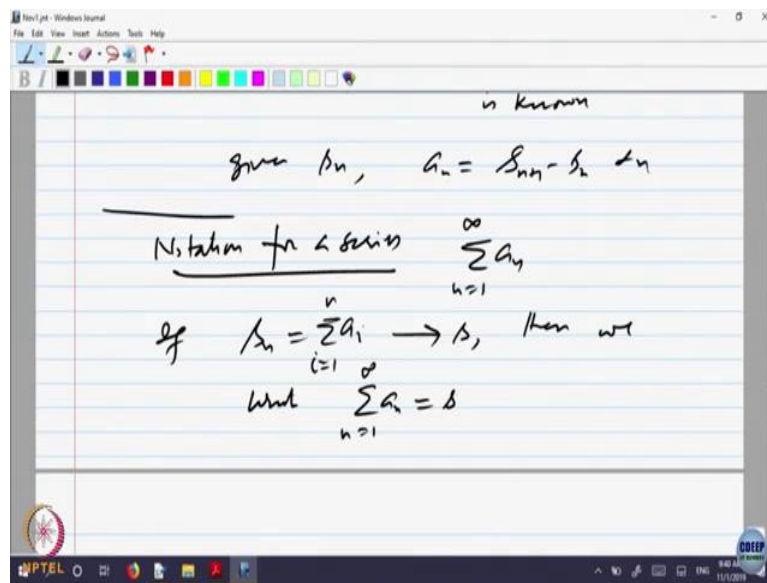 Nov1.jnt - Windows Journal
File Edit View Insert Actions Tools Help
B I
is known
given s_n, a_n = S_{n+1} - s_n ∀n
Notation for a series ∑_{n=1}^{∞} a_n
If s_n = ∑_{i=1}^{n} a_i → s, then we
∑_{n=1}^{∞} a_n = s
NPTEL
CDEEP
IIT BOMBAY
ENG
9:40 AM
11/1/2019